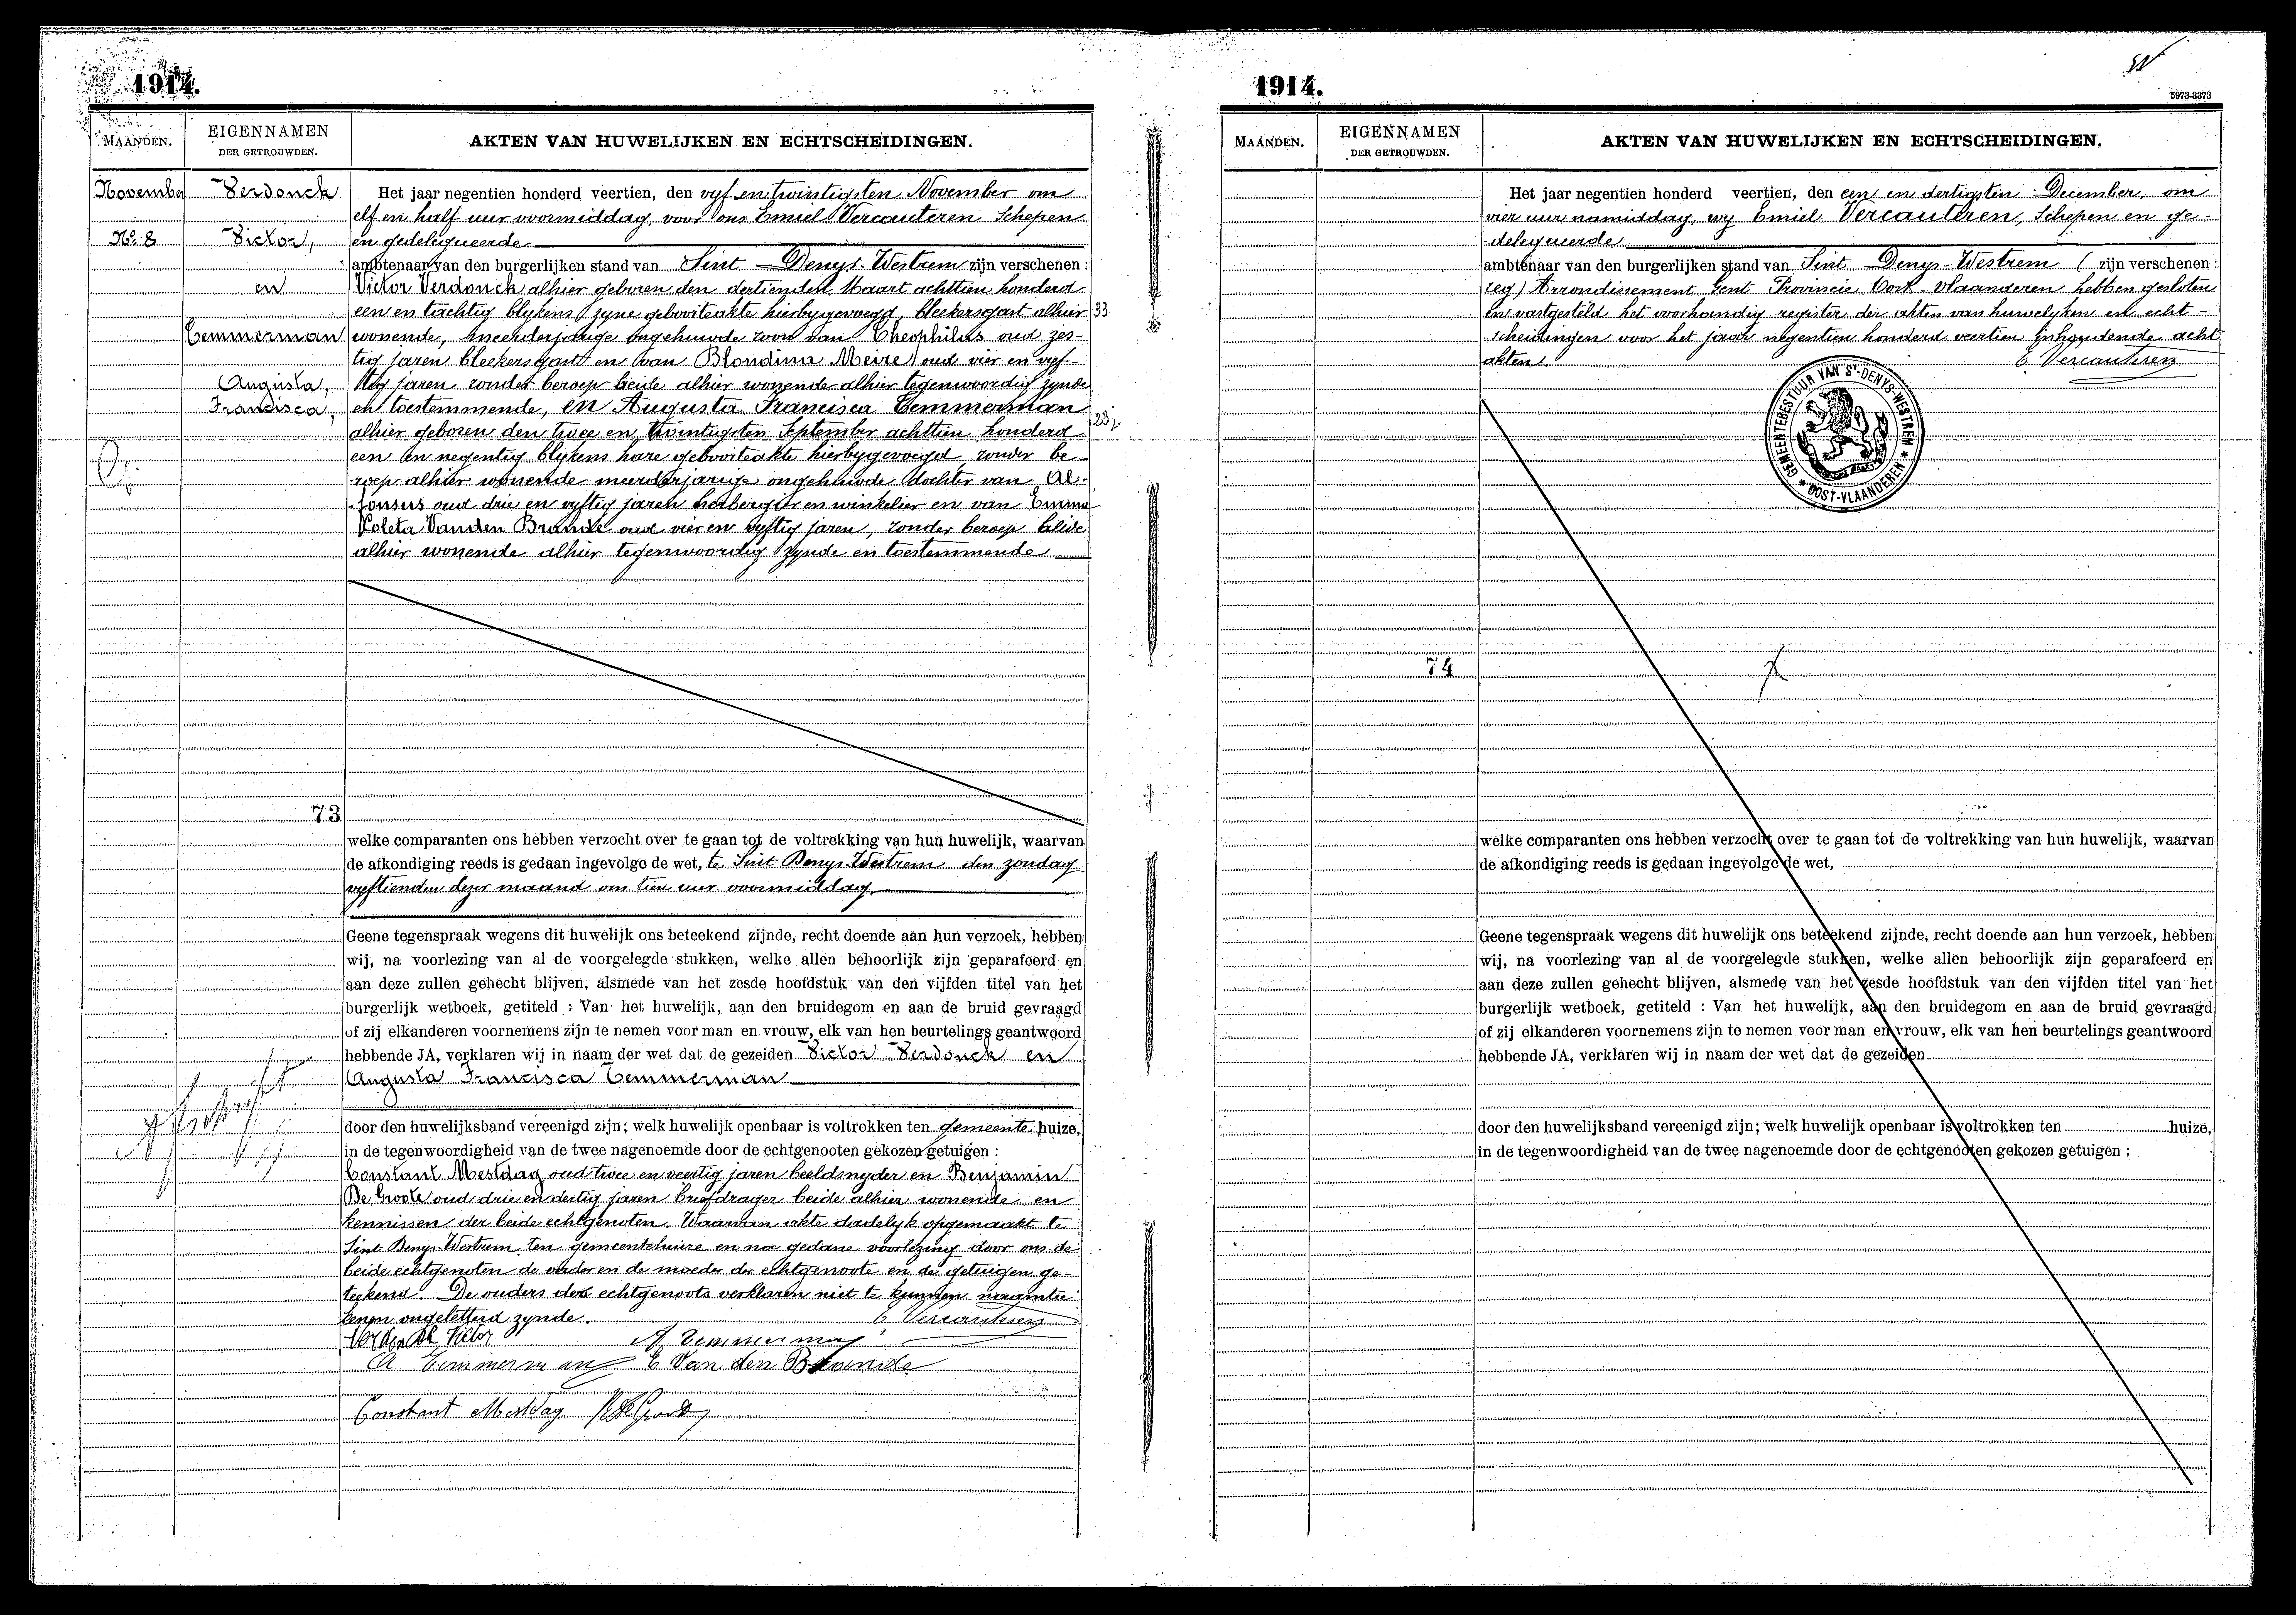 1914.
MAANDEN.
EIGENNAMEN
DER GETROUWDEN.
AKTEN VAN HUWELIJKEN EN ECHTSCHEIDINGEN.
November
No. 8
Verdonck
Victor,
en
Temmerman
Augusta,
Francisca,
Het jaar negentien honderd veertien, den vyf en twintigsten November om
elf en half uur voormiddag, voor ons Emiel Vercauteren Schepen
en gedelegueerde
ambtenaar van den burgerlijken stand van Sint Denys-Westrem zijn verschenen :
Victor Verdonck alhier geboren den dertienden Maart achttien honderd
een en tachtig blykens zyne geboorteakte hierbygevoegd, bleekersgast alhier
33
wonende, meerderjarige ongehuwde zoon van Theophilus oud zes-
tig jaren bleekersgast en van Blondina Meire oud vier en vyf-
tig jaren zonder beroep beide alhier wonende alhier tegenwoordig zynde
en toestemmende, en Augusta Francisca Temmerman
23
alhier geboren den twee en twintigsten September achttien honderd
een en negentig blykens hare geboorteakte hierbygevoegd, zonder be-
roep alhier wonende meerderjarige ongehuwde dochter van Al-
fonsus oud drie en vyftig jaren herbergier en winkelier en van Emma
Coleta Vanden Brande oud vier en vyftig jaren, zonder beroep beide
alhier wonende alhier tegenwoordig zynde en toestemmende
73
welke comparanten ons hebben verzocht over te gaan tot de voltrekking van hun huwelijk, waarvan
de afkondiging reeds is gedaan ingevolge de wet, te Sint Denys-Westrem den zondag
vyftienden dezer maand om tien uur voormiddag.
Geene tegenspraak wegens dit huwelijk ons beteekend zijnde, recht doende aan hun verzoek, hebben
wij, na voorlezing van al de voorgelegde stukken, welke allen behoorlijk zijn geparafeerd en
aan deze zullen gehecht blijven, alsmede van het zesde hoofdstuk van den vijfden titel van het
burgerlijk wetboek, getiteld : Van het huwelijk, aan den bruidegom en aan de bruid gevraagd
of zij elkanderen voornemens zijn te nemen voor man en vrouw, elk van hen beurtelings geantwoord
hebbende JA, verklaren wij in naam der wet dat de gezeiden Victor Verdonck en
Augusta Francisca Temmerman
door den huwelijksband vereenigd zijn; welk huwelijk openbaar is voltrokken ten gemeente huize,
in de tegenwoordigheid van de twee nagenoemde door de echtgenooten gekozen getuigen :
Constant Mestdag oud twee en veertig jaren beeldsnyder en Benjamin
De Groote oud drie en dertig jaren briefdrager beide alhier wonende en
kennissen der beide echtgenoten. Waarvan akte dadelyk opgemaakt te
Sint Denys-Westrem, ten gemeentehuize en na gedane voorlezing door ons de
beide echtgenoten de vader en de moeder der echtgenoote en de getuigen ge-
teekend. De ouders des echtgenoots verklaren niet te kunnen
ongeletterd zynde.
E Vercauteren
Verdonck Victor
A Temmerman
A Temmerman
E Van den Brande
Constant Mestdag
B De Groote
1914.
5973-3373
MAANDEN.
EIGENNAMEN
DER GETROUWDEN.
AKTEN VAN HUWELIJKEN EN ECHTSCHEIDINGEN.
Het jaar negentien honderd veertien, den een en dertigsten December, om
vier uur namiddag, wy Emiel Vercauteren, Schepen en ge-
delegueerde
ambtenaar van den burgerlijken stand van Sint Denys-Westrem ( zijn verschenen :
Arrondissement Gent Provincie Oost-Vlaanderen hebben gesloten
en vastgesteld het voorhandig register der akten van huwelyken en echt-
scheidingen voor het jaar negentien honderd veertien inhoudende acht
akten.
E Vercauteren
GEMEENTEBESTUUR VAN St-DENYS-WESTREM
* OOST-VLAANDEREN *
74
welke comparanten ons hebben verzocht over te gaan tot de voltrekking van hun huwelijk, waarvan
de afkondiging reeds is gedaan ingevolge de wet,
Geene tegenspraak wegens dit huwelijk ons beteekend zijnde, recht doende aan hun verzoek, hebben
wij, na voorlezing van al de voorgelegde stukken, welke allen behoorlijk zijn geparafeerd en
aan deze zullen gehecht blijven, alsmede van het zesde hoofdstuk van den vijfden titel van het
burgerlijk wetboek, getiteld : Van het huwelijk, aan den bruidegom en aan de bruid gevraagd
of zij elkanderen voornemens zijn te nemen voor man en vrouw, elk van hen beurtelings geantwoord
hebbende JA, verklaren wij in naam der wet dat de gezeiden
door den huwelijksband vereenigd zijn; welk huwelijk openbaar is voltrokken ten huize,
in de tegenwoordigheid van de twee nagenoemde door de echtgenooten gekozen getuigen :